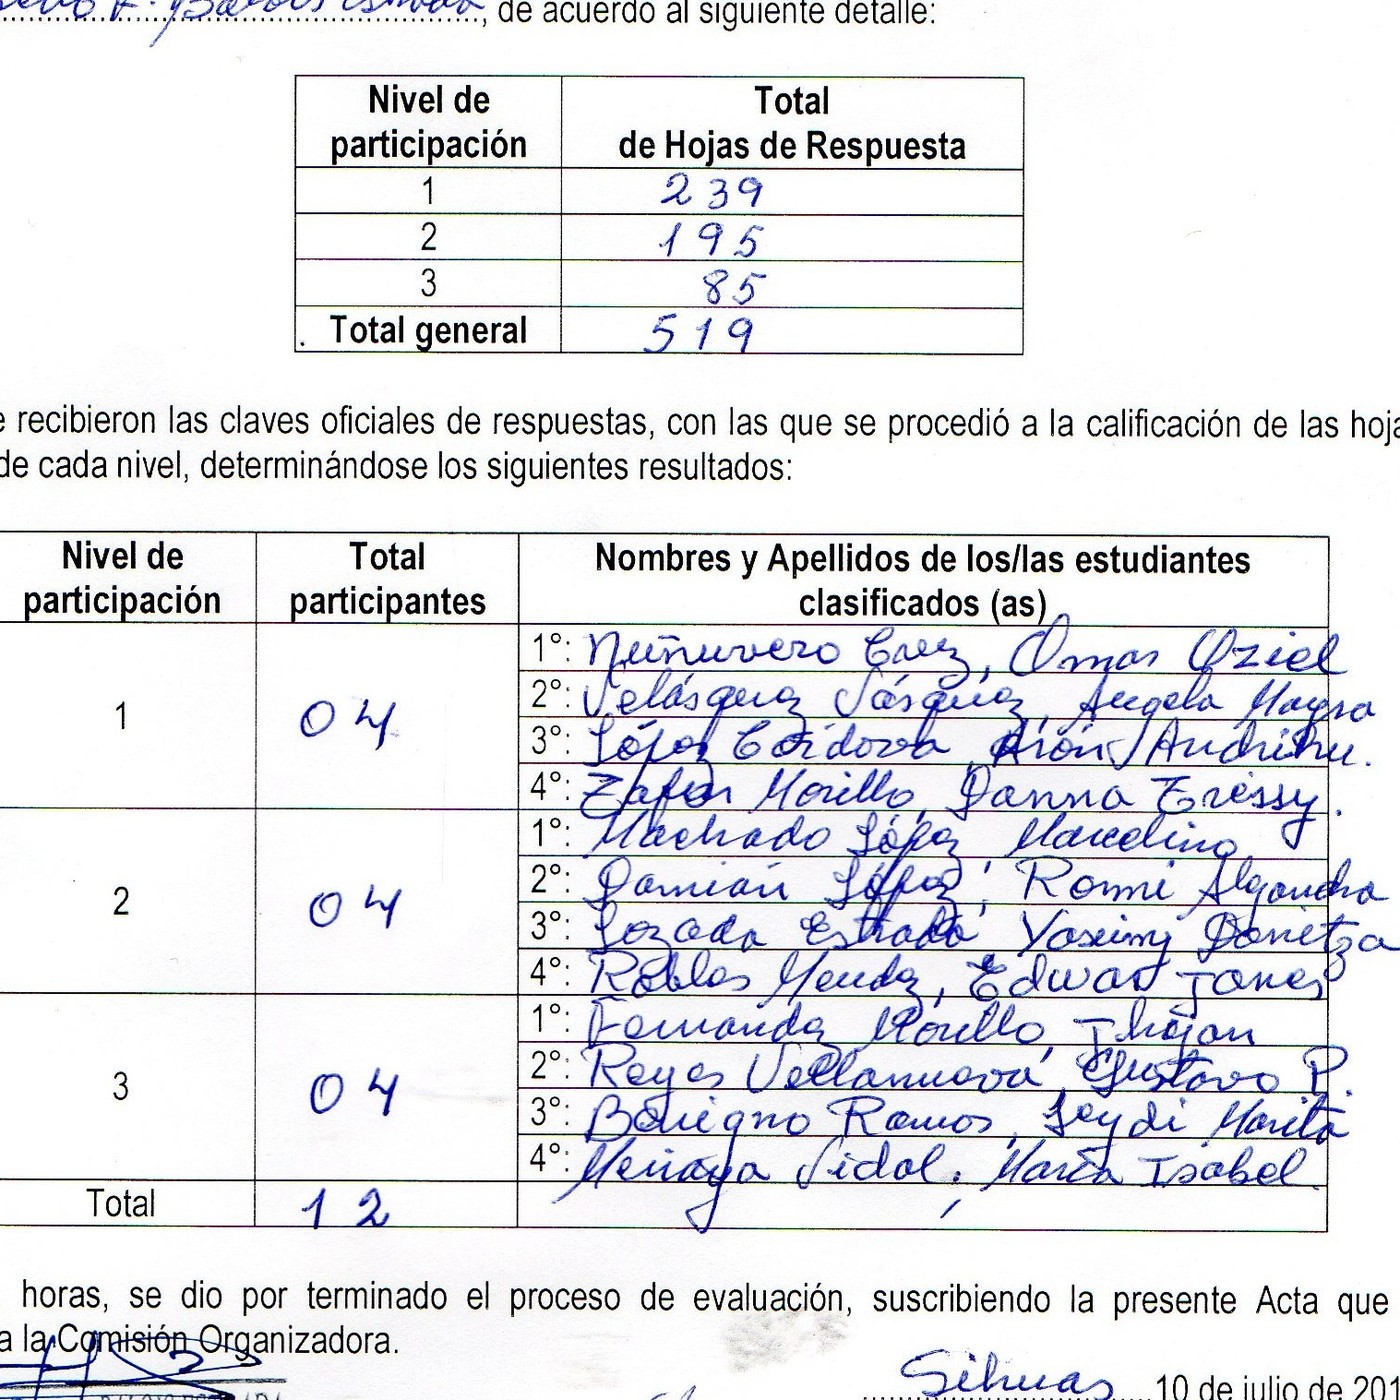 , de acuerdo al siguiente detalle:
Nivel de participación Total de Hojas de Respuesta
1 239
2 195
3 85
Total general 519
e recibieron las claves oficiales de respuestas, con las que se procedió a la calificación de las hoja
de cada nivel, determinándose los siguientes resultados:
Nivel de participación Total participantes Nombres y Apellidos de los/las estudiantes clasificados (as)
1 04
1°: Nuñuvero Caez, Omar Oziel
2°: Velásquez Vásquez, Angela Mayra
3°: López Córdova, Airón
4°: Zafra Morillo, Danna Greissy.
2 04
1°: Machado López Marcelino
2°: Damián López, Romi
3°: Lozada Estrada Yaximy Danitza
4°: Robles Mendez, Edwar James
3 04
1°: Fernandez Morillo, Jhojan
2°: Reyes Villanueva, Gustavo P.
3°: Benigno Ramos, Leydi Marita
4°: Meriaya Vidal, María Isabel
Total 12
horas, se dio por terminado el proceso de evaluación, suscribiendo la presente Acta que
a la Comisión Organizadora.
Sihuas 10 de julio de 20